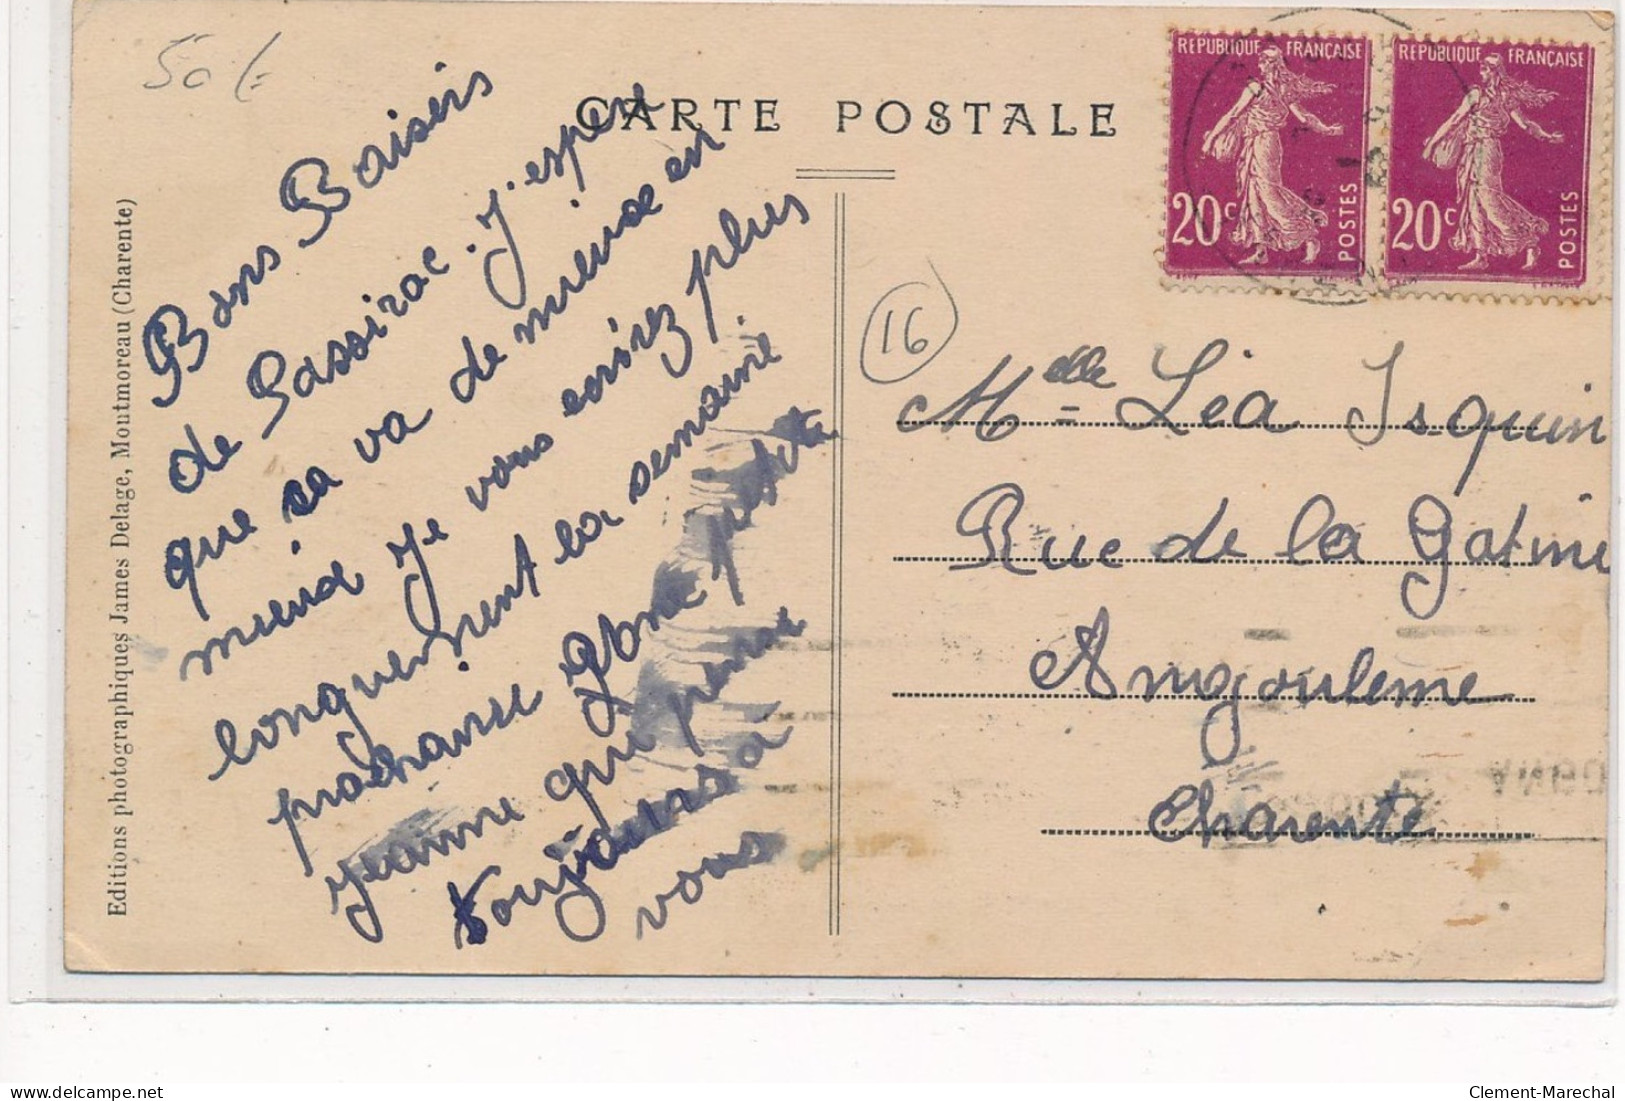 50 f
CARTE POSTALE
REPUBLIQUE FRANÇAISE
20c
POSTES
REPUBLIQUE FRANÇAISE
20c
POSTES
16
Editions photographiques James Delage, Moutmoreau (Charente)
Bons Baisers
de Passirac. J'espere
que sa va de mieux en
mieux Je vous ecrirez plus
longuement la semaine
prochaine
Jeanne qui pense
toujours à
vous
Melle Léa Isquin
Rue de la Gatine
Angouleme
Charente
Clement-Marechal
delcampe.net